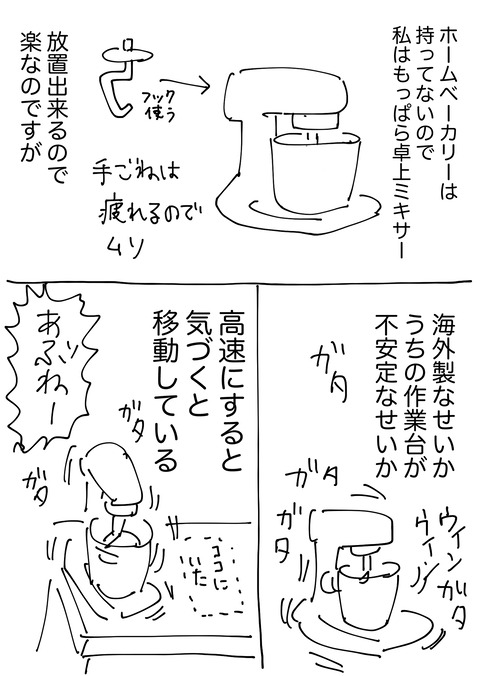 ホームベーカリーは
持ってないので
私はもっぱら卓上ミキサー
フック
使う
手ごねは
疲れるので
ムリ
放置出来るので
楽なのですが
海外製なせいか
うちの作業台が
不安定なせいか
ガタ
ガタ
ガタ
ウイン
ウィンン
ガタ
高速にすると
気づくと
移動している
ガタ
ガタ
ココに
いた
あぶねー